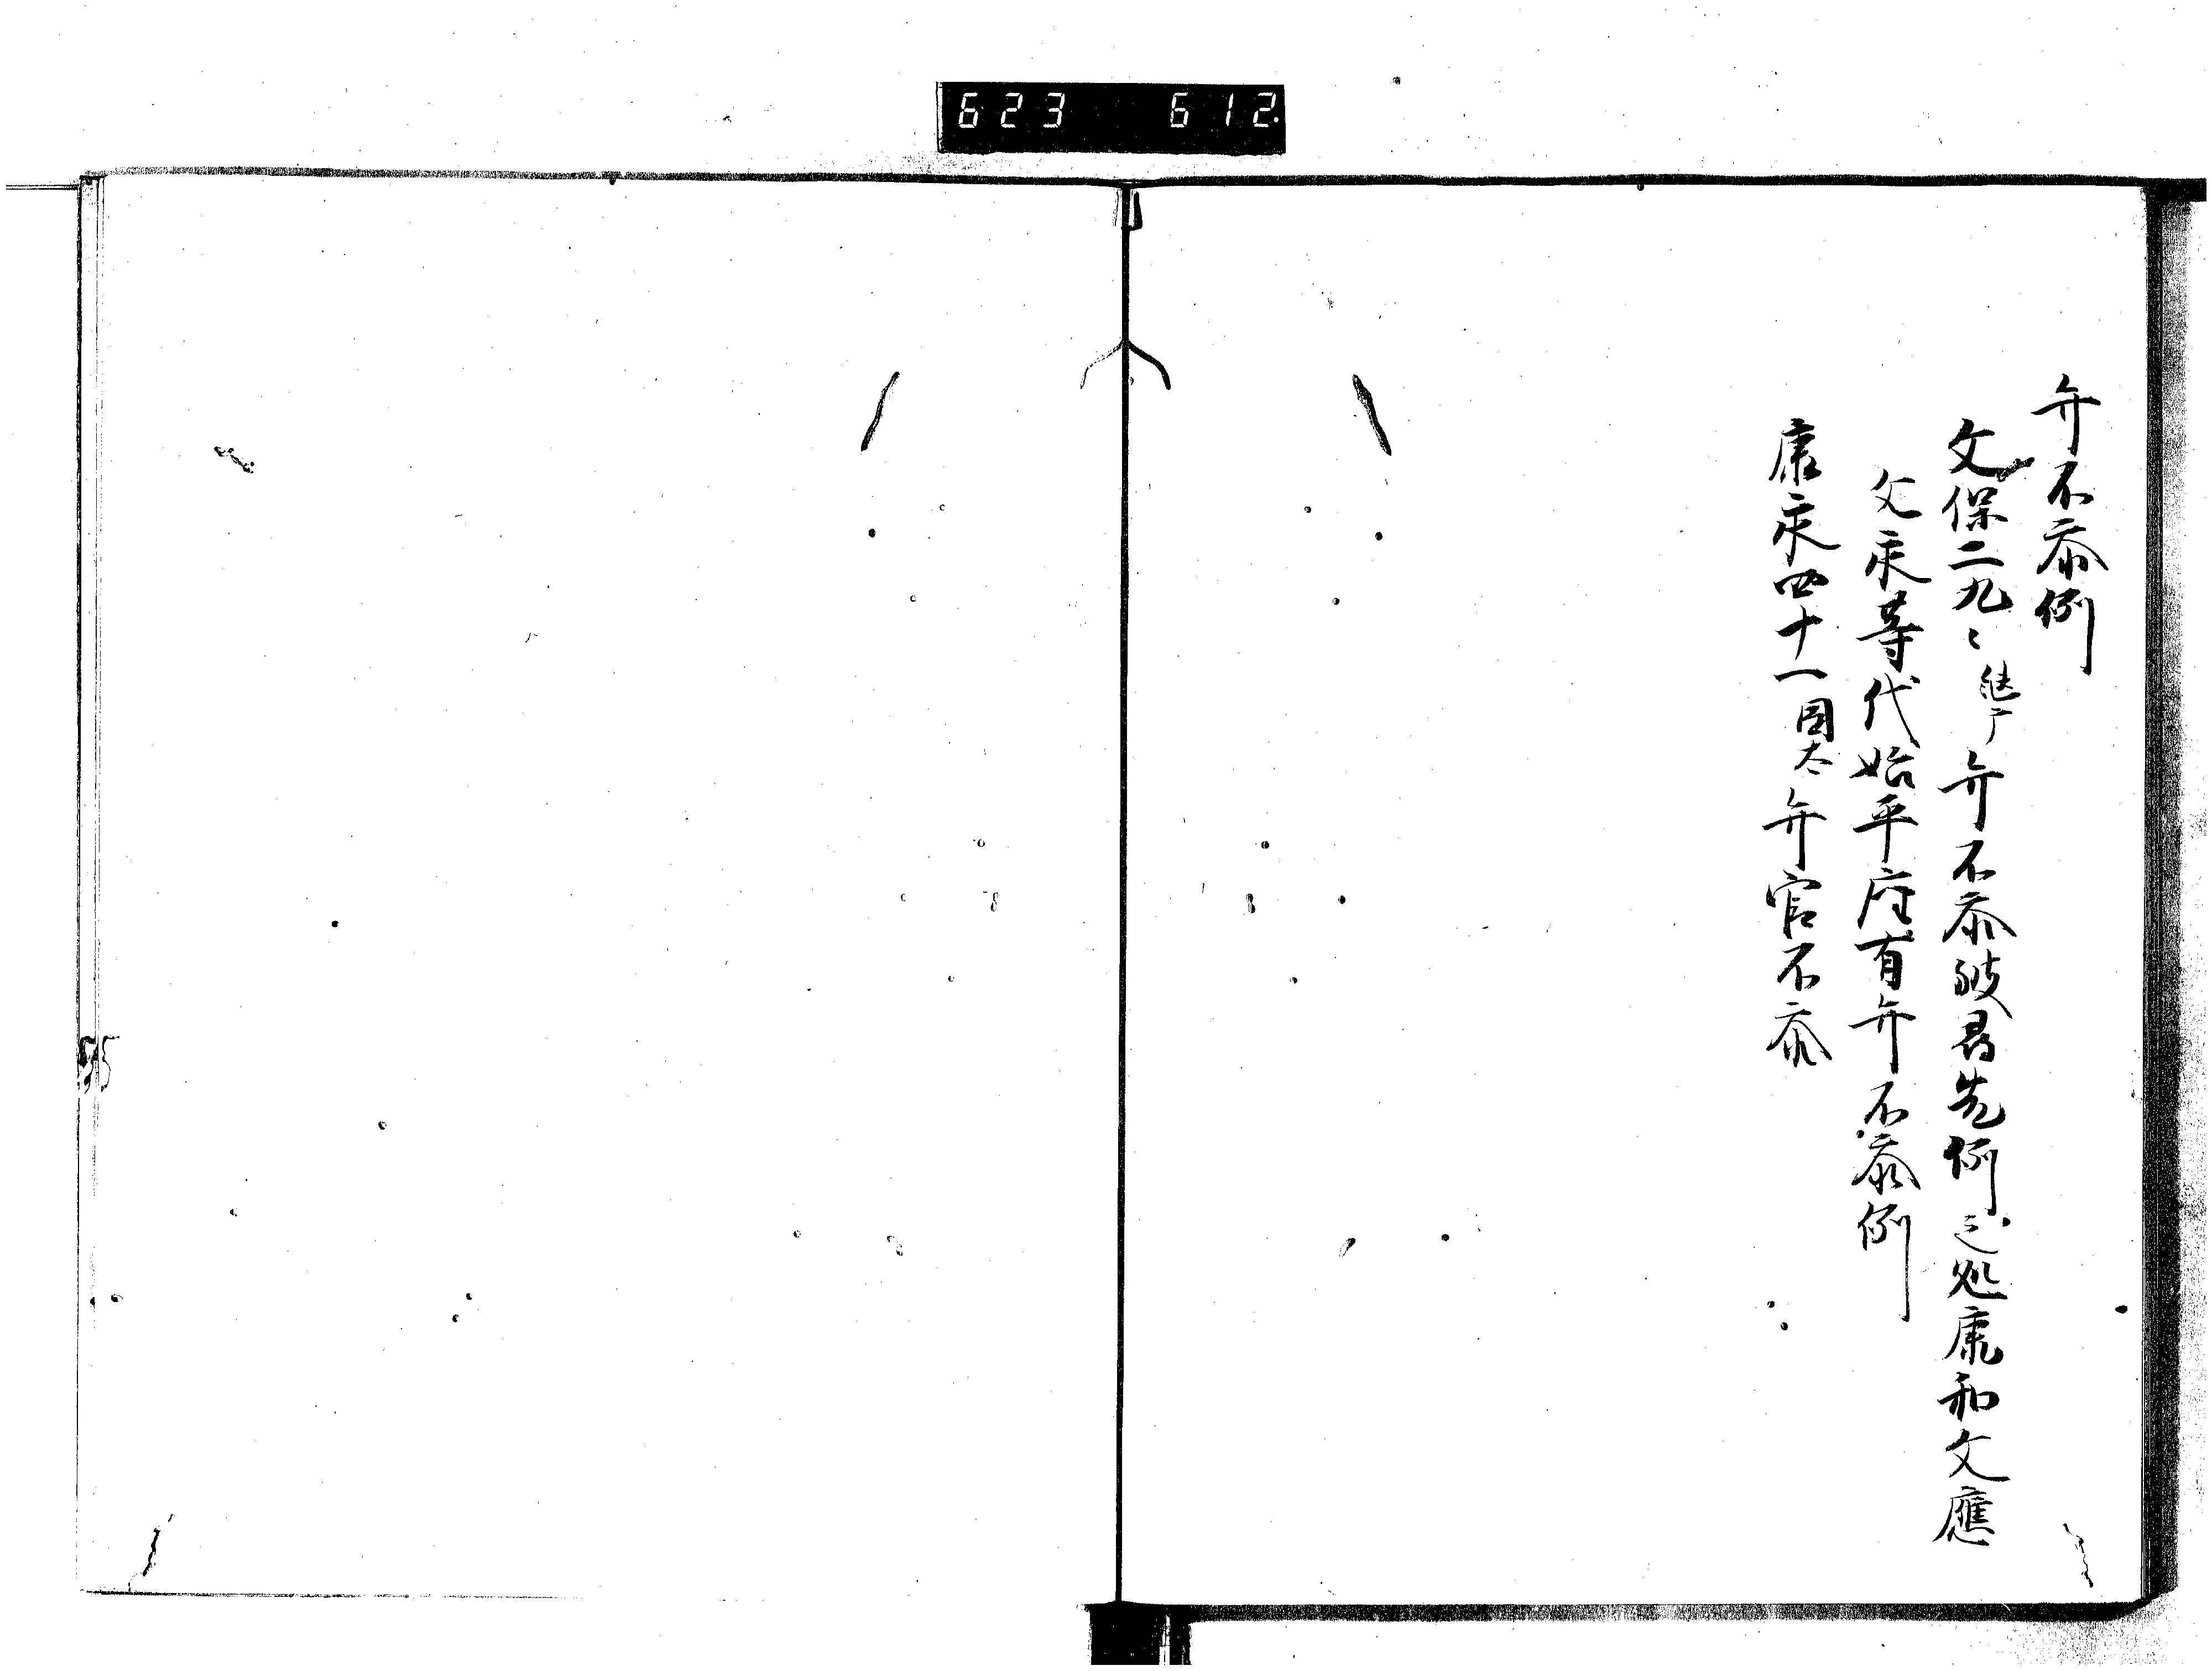 623 612.
弁不参例
文保二九〻 弁不参被尋先例之処康和文應
文永等代始平座有弁不参例
康永四十一 弁官不参